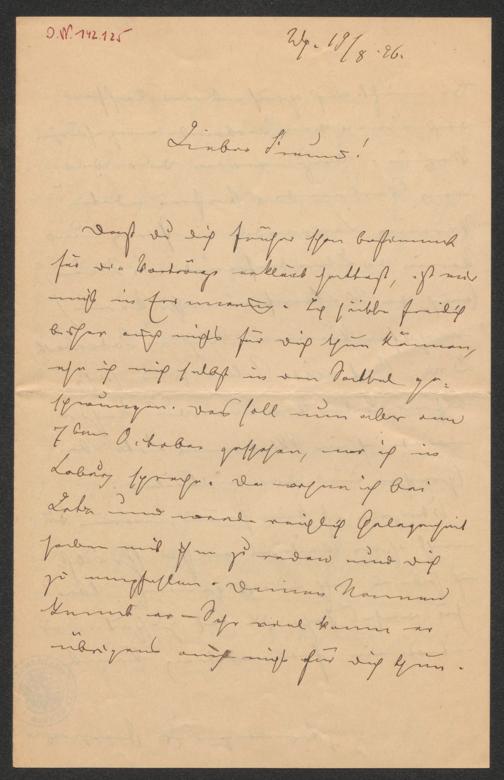 I.N. 142.125
19/8. 96.
Lieber Freund!
Daß du dich früher schon bestimmt
für die Vorträge erklärt hattest, ist mir
nicht in Erinnerung. Ich hätte freilich
bisher auch nichts für dich thun können,
ehe ich mich selbst in den Sattel ge-
schwungen. Das soll nun aber am
7ten October geschehen, wo ich in
Coburg spreche. Da wohne ich bei
und werde reichlich Gelegenheit
haben mit ihm zu reden und dich
zu empfehlen. Deinen Namen
kennt er – Sehr viel kann er
übrigens auch nicht für dich thun.